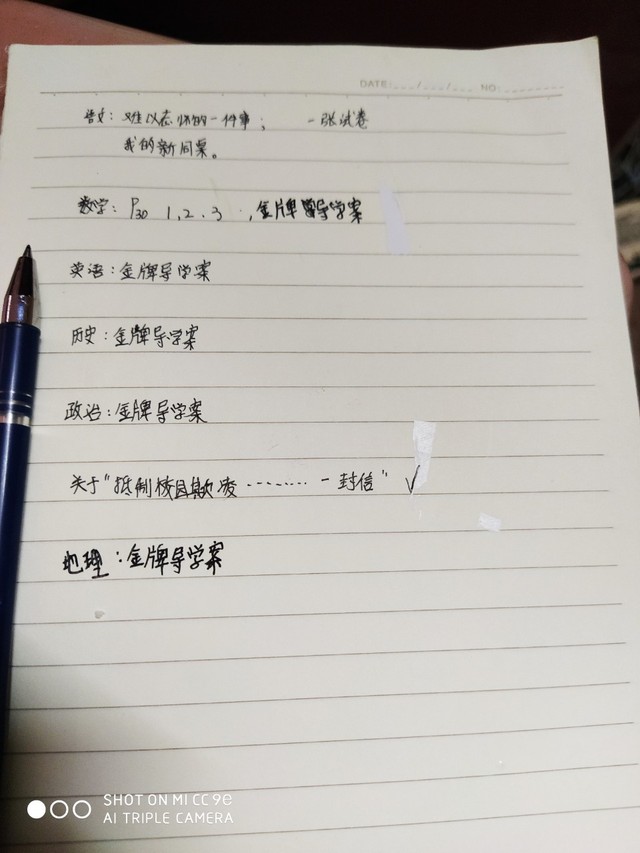 DATE:.../.../... NO:
语文: 难以忘怀的一件事; 一张试卷
我的新同桌。
数学: P30 1、2、3 ,金牌导学案
英语:金牌导学案
历史:金牌导学案
政治:金牌导学案
关于“抵制校园欺凌········一封信” √
地理:金牌导学案
SHOT ON MI CC 9e
AI TRIPLE CAMERA